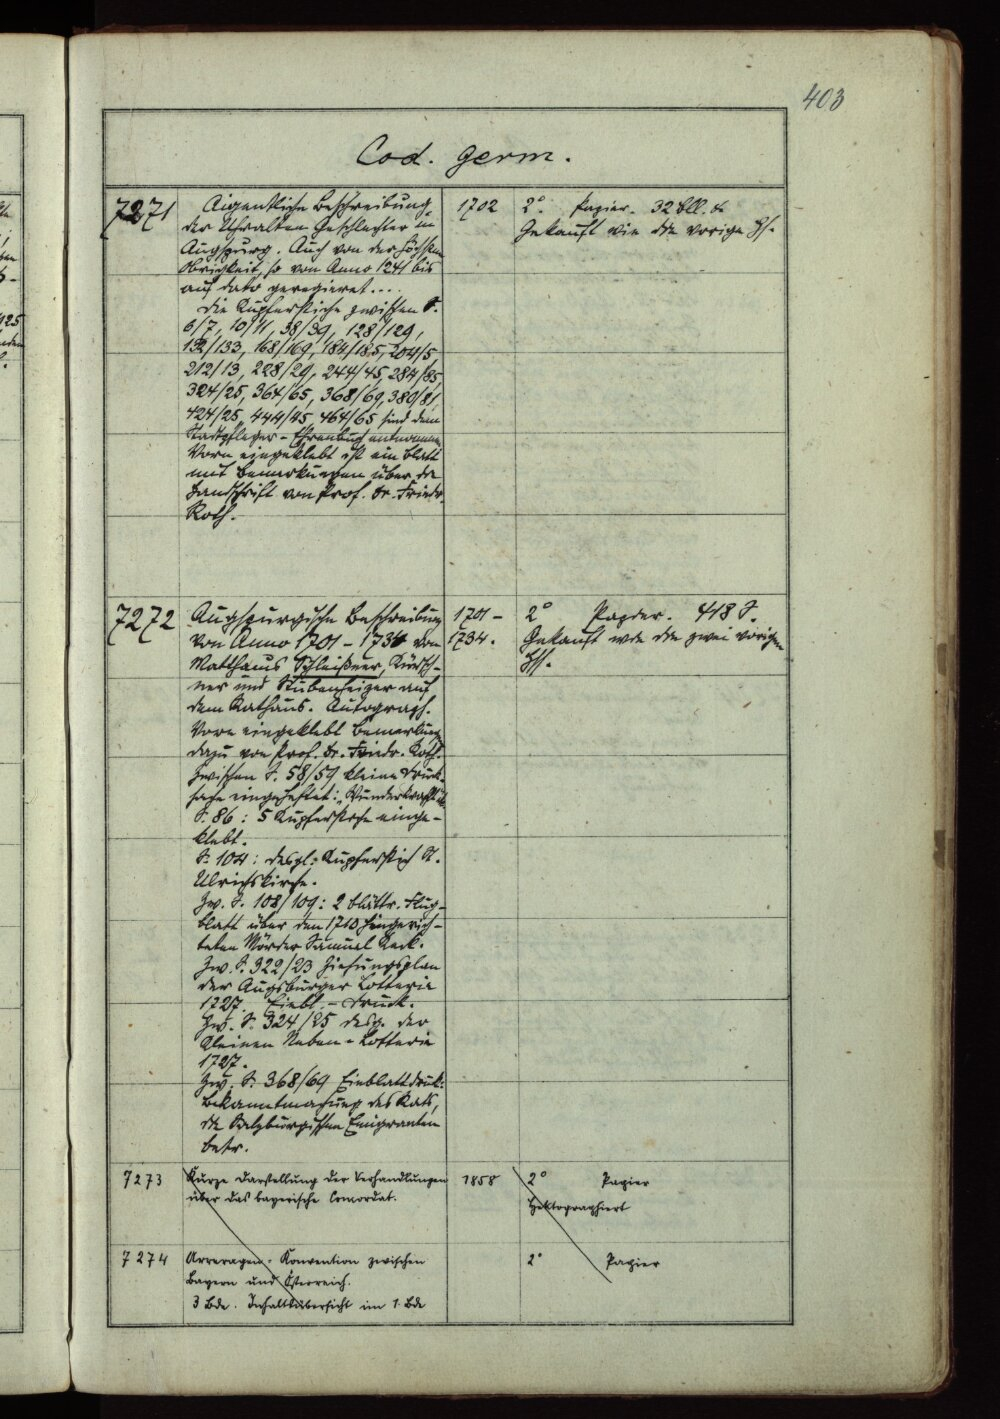 403
Cod. germ.
7271
Aigentliche Beschreibung
der Uhralten Geschlechter in
Augspurg. Auch von der höchsten
Obrigkeit, so von Anno 1241 bis
auf dato geregieret....
Die Kupferstiche zwischen S.
6/7, 10/11, 38/39, 128/129,
132/133, 168/169, 184/185, 204/5,
212/13, 228/29, 244/45, 284/85,
324/25, 364/65, 368/69, 380/81,
424/25, 444/45 464/65 sind dem
Stadtpfleger-Ehrenbuch entnommen.
Vorn eingeklebt ist ein Blatt
mit Bemerkungen über die
Handschrift von Prof. Dr. Friedr.
Roth.
1702
2°. Papier. 32 Bll. &
Gekauft wie die vorige Hs.
7272
Augspurgische Beschreibung
von Anno 1701 - 1734 von
Matthäus Schleißner, Kürsch-
ner und Stubenheizer auf
dem Rathaus. Autograph.
Vorn eingeklebt Bemerkung
dazu von Prof. Dr. Friedr. Roth.
Zwischen S. 58/59 kleine Druck-
sache eingeheftet:
S. 86: 5 Kupferstiche einge-
klebt.
S. 104: desgl. Kupferstich St.
Ulrichskirche.
Zw. S. 108/109: 2 blättr. Flug-
blatt über den 1710 hingerich-
teten Mörder Samuel Keck.
Zw. S. 322/23 Ziehungsplan
der Augsburger Lotterie
1727. Einbl.-Druck.
Zw. S. 324/25 desgl. der
kleinen Neben-Lotterie
1727.
Zw. S. 368/69 Einblattdruck:
Bekanntmachung des Rats,
die Salzburgischen Emigranten
betr.
1701 -
1734.
2° Papier. 418 S.
Gekauft wie die zwei vorigen
Hss.
7273
Kurze Darstellung der Verhandlungen
über das bayerische Concordat.
1858
2° Papier
Hektographiert
7274
Arreragen-Konvention zwischen
Bayern und Österreich.
3 Bde. Inhaltsübersicht im 1. Bde
2° Papier